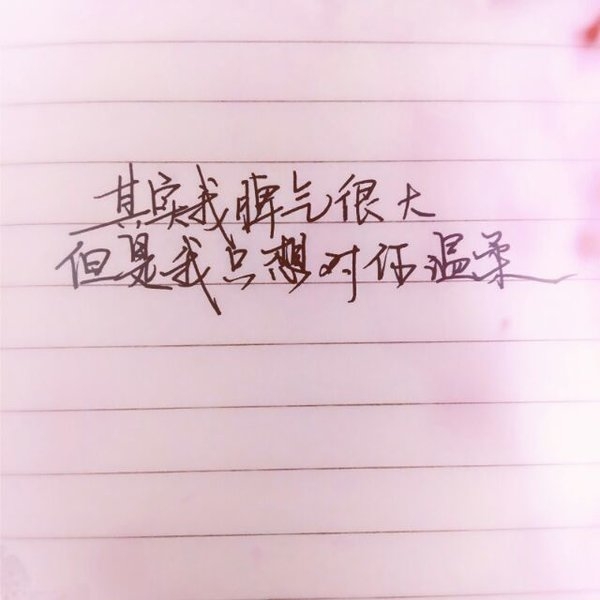 其实我脾气很大
但是我只想对你温柔